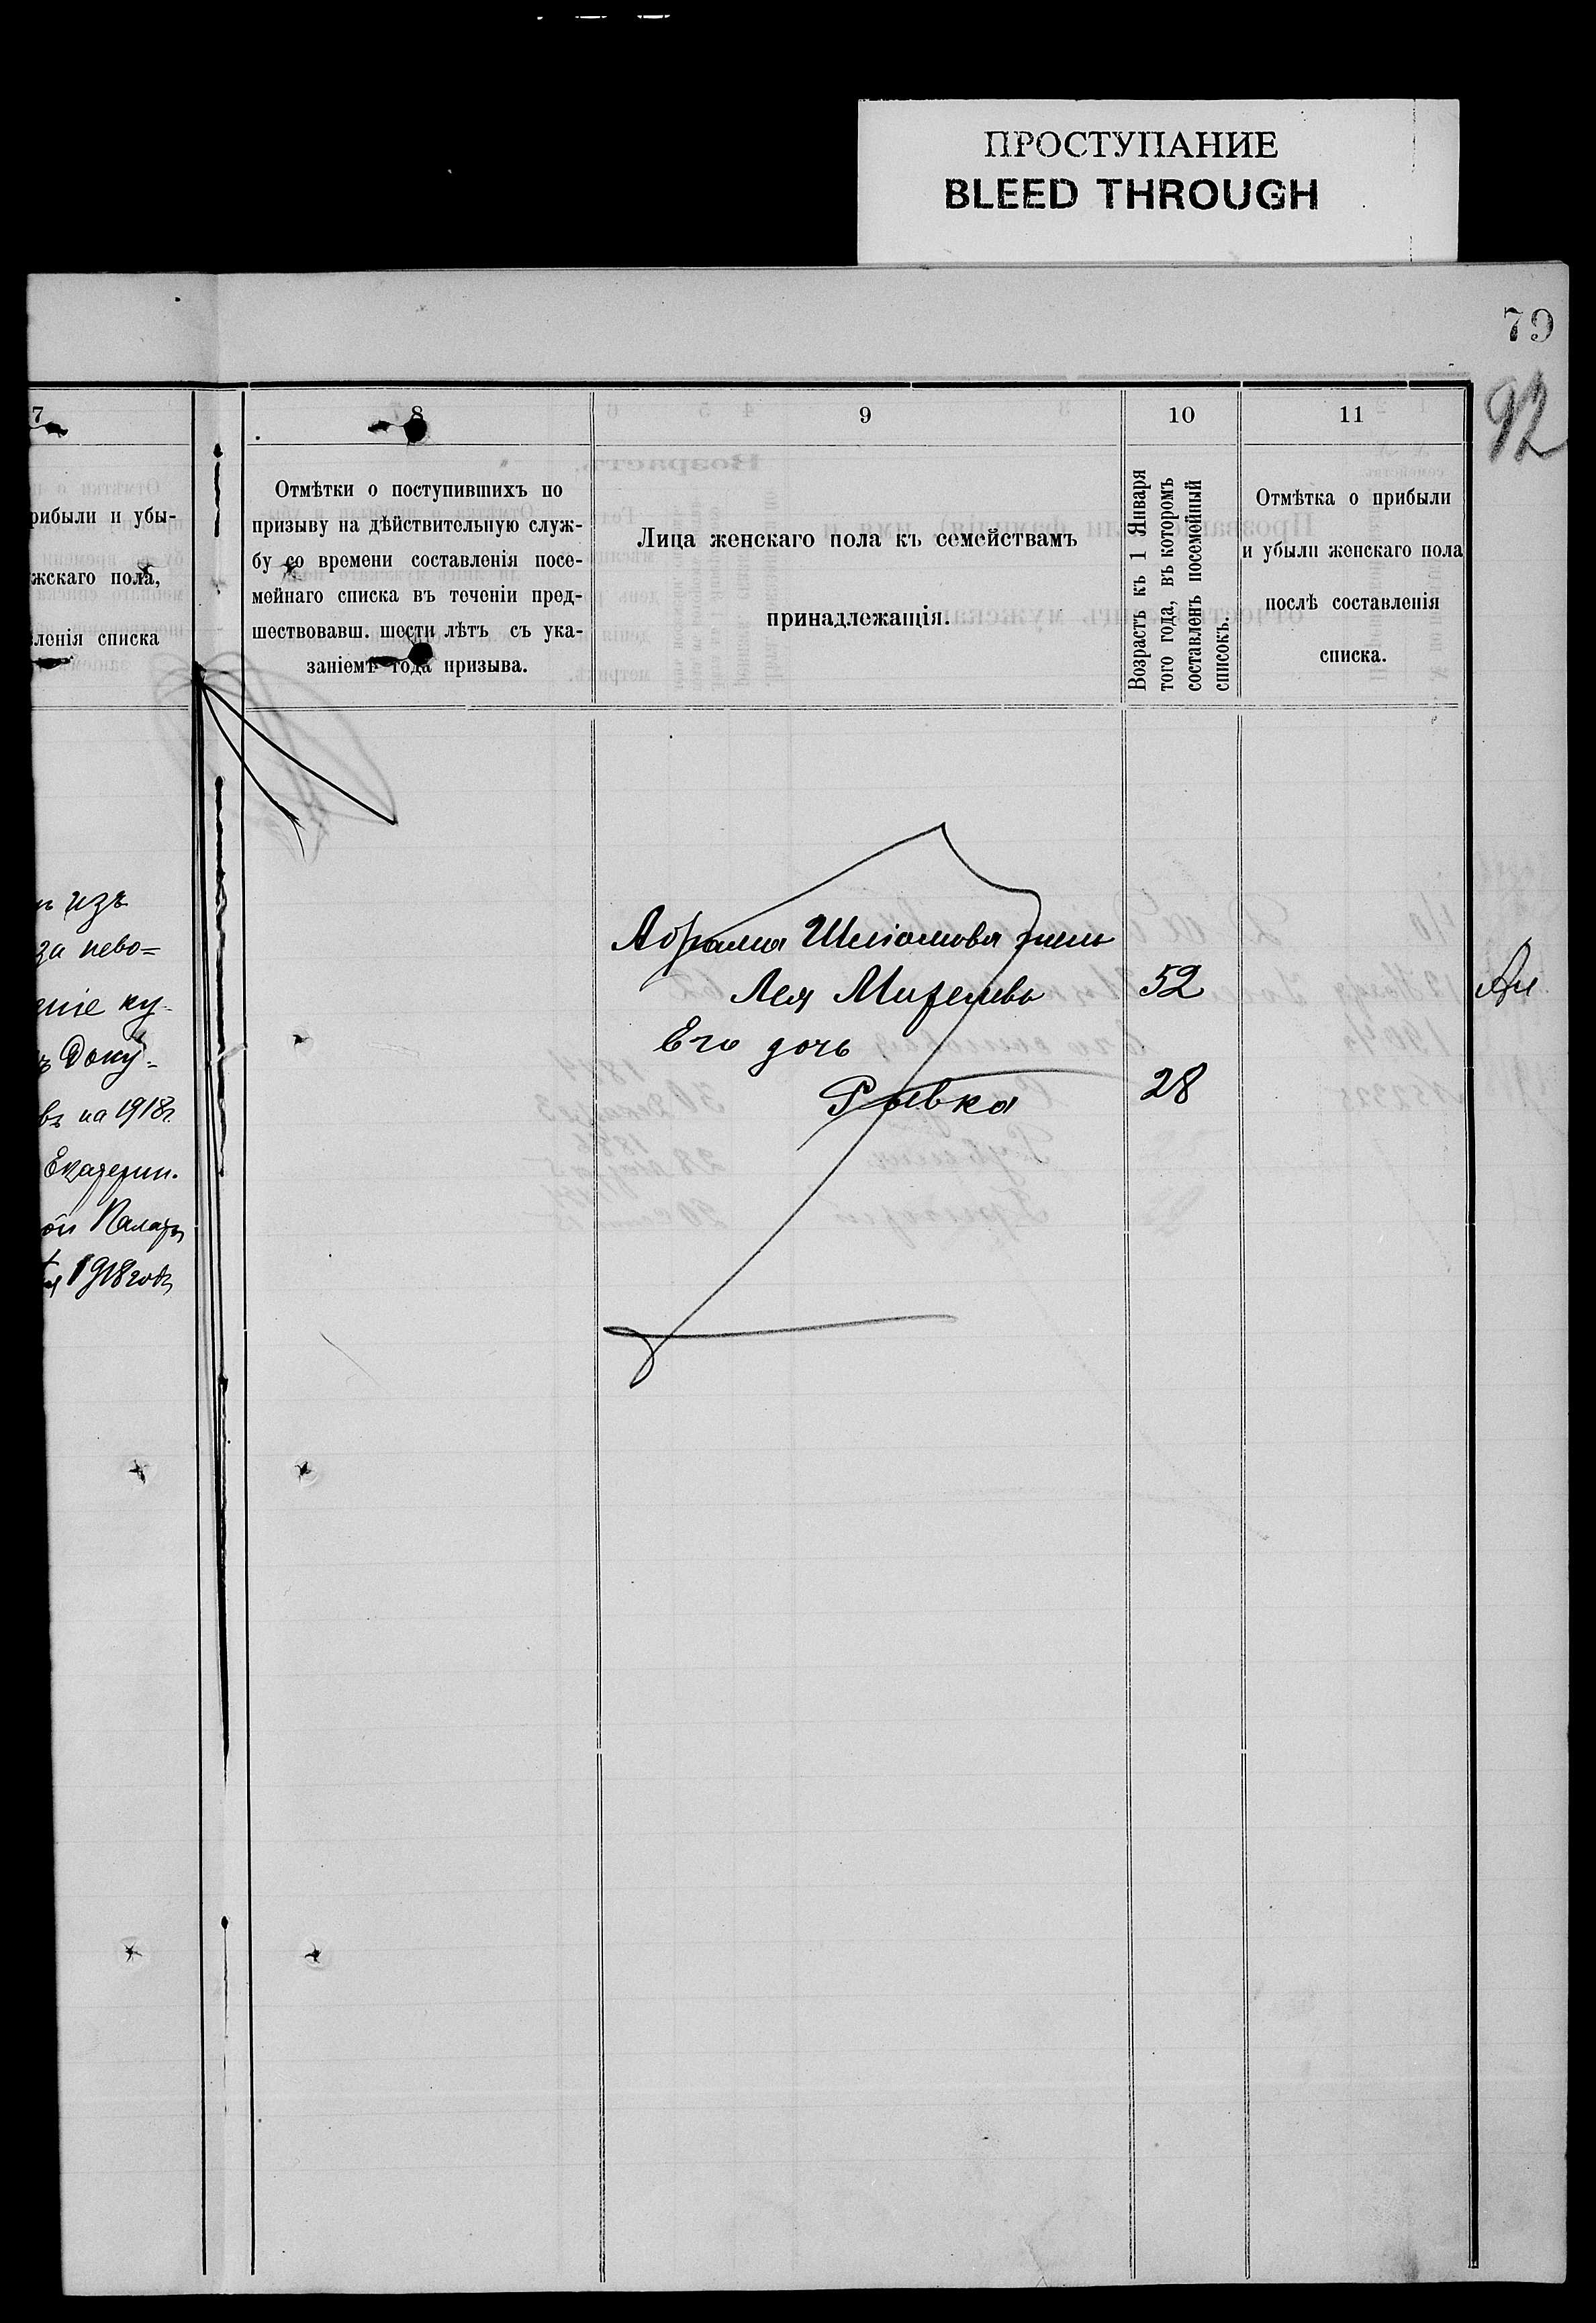 ПРОСТУПАНИЕ
BLEED THROUGH
79
92
7
рибыли и убы-
жскаго пола,
вленія списка
изъ
за нево=
ніе ку-
Доку=
въ на 1918г.
Екатерин.
ой Палаты
1918 года
8
Отмѣтки о поступившихъ по
призыву на дѣйствительную служ-
бу со времени составленія посе-
мейнаго списка въ теченіи пред-
шествовавш. шести лѣтъ съ ука-
заніемъ года призыва.
9
Лица женскаго пола къ семействамъ
принадлежащія.
10
Возрастъ къ 1 Января
того года, въ которомъ
составленъ посемейный
списокъ.
11
Отмѣтка о прибыли
и убыли женскаго пола
послѣ составленія
списка.
Абрама Шліомова жена
Лея 52
Его дочь
Рывка 28